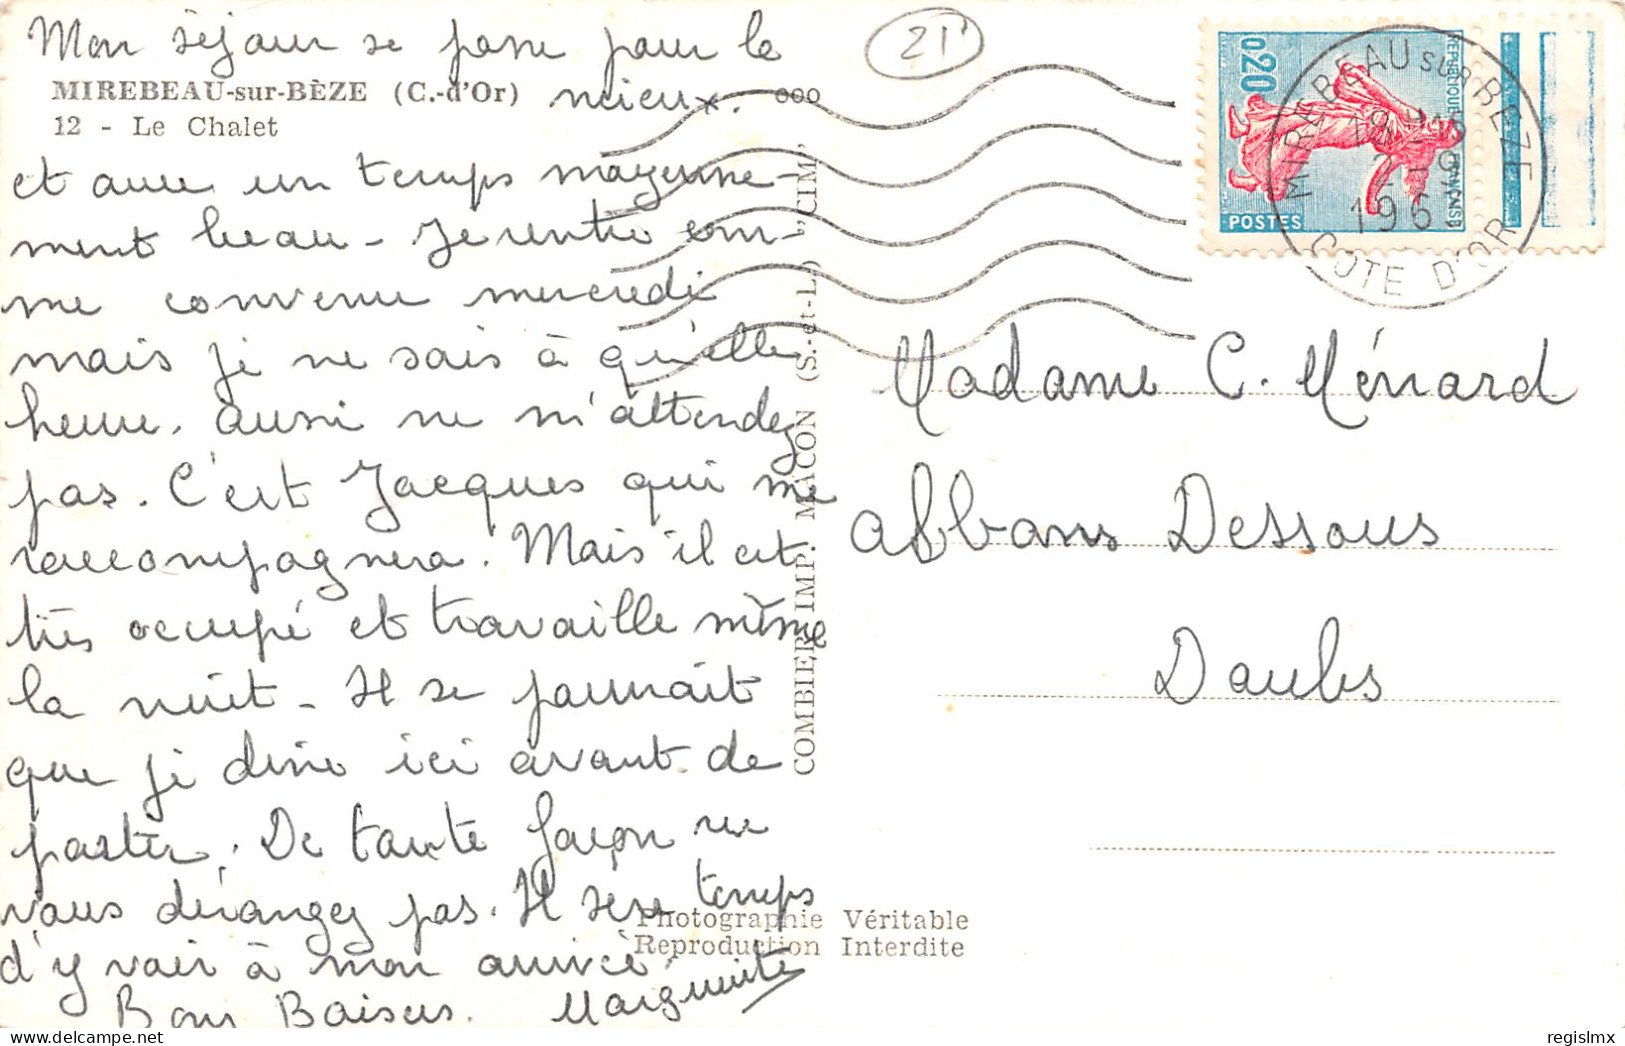 Mon séjour se passe pour le
mieux.
MIREBEAU-sur-BÈZE (C.-d'Or)
12 - Le Chalet
et avec un temps moyenne-
ment beau - Je rentre com-
me convenu mercredi
mais je ne sais à qu'elle
heure. aussi ne m'attendez
pas. C'est Jacques qui me
raccompagnera. Mais il est
très occupé et travaille même
la nuit - Il se pourrait
que je dîne ici avant de
partir. De toute façon ne
vous dérangez pas. Il sera temps
d'y voir à mon arrivée
Bons Baisers. Marguerite
ooo
21
COMBIER IMP. MACON (S.-et-L.) "CIM"
Photographie Véritable
Reproduction Interdite
0,20
REPUBLIQUE FRANÇAISE
POSTES
MIREBEAU SUR BEZE
COTE D'OR
Madame C. Ménard
abbans Dessous
Doubs
regislmx